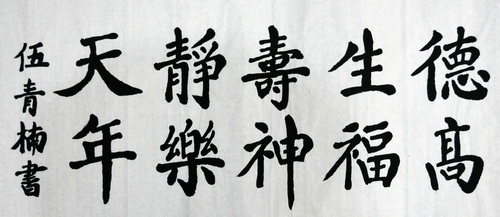 德高
生福
壽神
靜樂
天年
伍青楠書